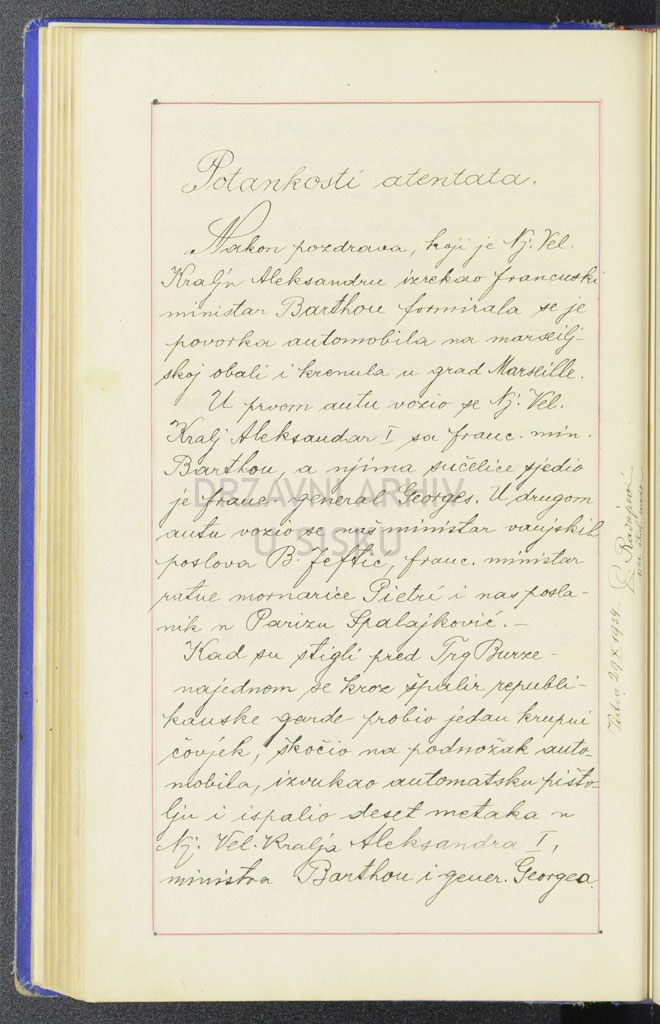 Potankosti atentata.
Nakon pozdrava, koji je Nj. Vel.
Kralju Aleksandru izrekao francuski
ministar Barthou formirala se je
povorka automobila na marseilj-
skoj obali i krenula u grad Marseille.
U prvom autu vozio se Nj. Vel.
Kralj Aleksandar I sa franc. min.
Barthou, a njima sučelice sjedio
je franc. general Georges. U drugom
autu vozio se naš ministar vanjskih
poslova B. Jeftić, franc. ministar
ratne mornarice Pietri i naš posla-
nik u Parizu Spalajković. –
Kad su stigli pred Trg Burze –
najednom se kroz špalir republi-
kanske garde probio jedan krupni
čovjek, skočio na podnožak auto-
mobila, izvukao automatsku pišto-
lju i ispalio deset metaka u
Nj. Vel. Kralja Aleksandra I,
ministra Barthou i gener. Georgea.
DRŽAVNI ARHIV
U SISKU
29 X 1934.